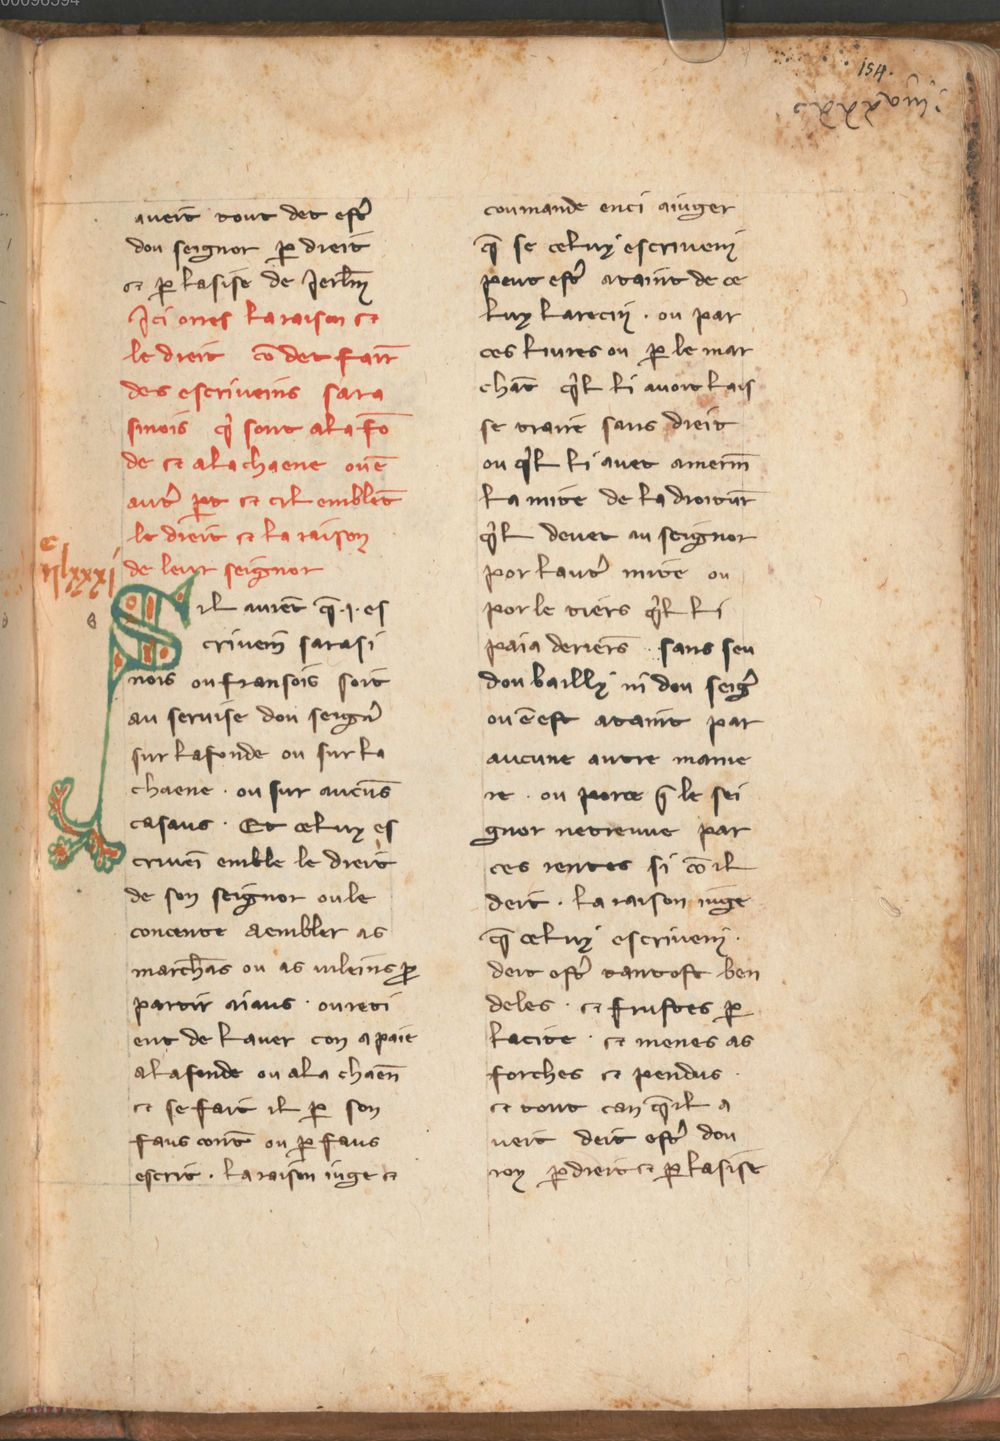 154.
aueit tout det estr̄
dou seignor p̱ dreit
et p̱ lasise de Jerl̄m
Ici orres la raison et
le dreit cō det fair̄
des escriueins sara
sinois q̄ sont ala fō
de et ala chaene ou ē
autr̄ p̱t et cil emblēt
le dreit et la raison
de leur seignor
Sil auiēt q̄ .i. es
criuein sarasi
nois ou fransois soit
au seruise dou seignr̄
sur la fonde ou sur la
chaene . ou sur aucūs
casaus . Et celuy es
criuei emble le dreit
de son seignor ou le
concente a embler as
marchās ou as uileins p̱
partir aiaus . ou reti
ent de lauer con a paie
ala fonde ou ala chaen̄
et se fait il p̱ son
faus cont̄ ou p̱ faus
escrit . la raison iuge et
coumande enci aiuger
q̄ se celuy escriuein
peut estr̄ ataint de ce
luy larecin . ou par
ces liures ou p̱ le mar
chāt q̄l li auoit lais
se traire sans dreit
ou q̄l li auet amerm̄
la mite de la droitur̄
q̄l deuet au seignor
por lautr̄ mite ou
por le tiers q̄l li
paia deriers . sans seu
dou bailly ni dou seigr̄
ou ē est ataint par
aucune autre manie
re . ou porce q̄ le sei
gnor netreuue par
ces rentes si cō il
deit . la raison iuge
q̄ celuy escriuein .
deit estr̄ tantost ben
deles . et frustes p̱
lacite . et menes as
forches et pendus .
et tout can q̄ il a
ueit deit estr̄ dou
roy p̱ dreit et p̱ lasise